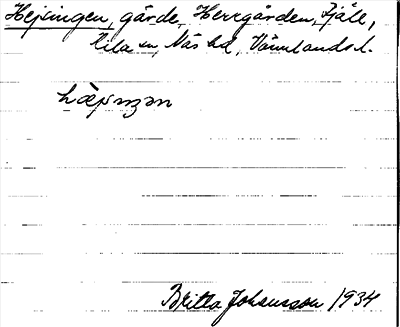 Hejsingen, gärde, Herrgården, Fjäle,
lila sn, Näs hd, Värmlands l.
Britta Johansson 1934